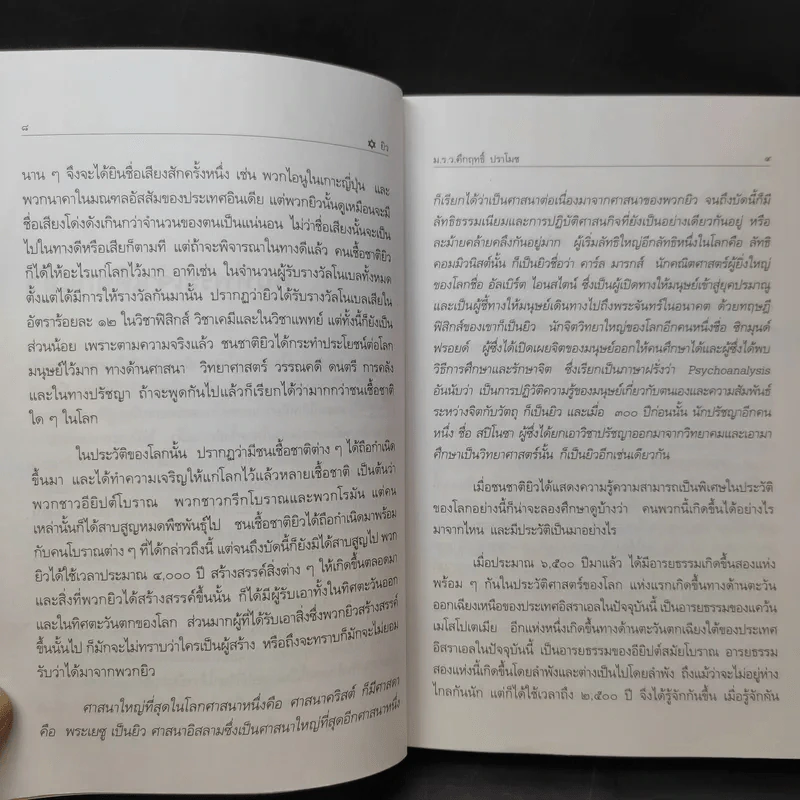 ๘
ยิว
นาน ๆ จึงจะได้ยินชื่อเสียงสักครั้งหนึ่ง เช่น พวกไอนูในเกาะญี่ปุ่น และ
พวกนาคาในมณฑลอัสสัมของประเทศอินเดีย แต่พวกยิวนั้นดูเหมือนจะมี
ชื่อเสียงโด่งดังเกินกว่าจำนวนของตนเป็นแน่นอน ไม่ว่าชื่อเสียงนั้นจะเป็น
ไปในทางดีหรือเสียก็ตามที แต่ถ้าจะพิจารณาในทางดีแล้ว คนเชื้อชาติยิว
ก็ได้ให้อะไรแก่โลกไว้มาก อาทิเช่น ในจำนวนผู้รับรางวัลโนเบลทั้งหมด
ตั้งแต่ได้มีการให้รางวัลกันมานั้น ปรากฏว่ายิวได้รับรางวัลโนเบลเสียใน
อัตราร้อยละ ๑๒ ในวิชาฟิสิกส์ วิชาเคมีและในวิชาแพทย์ แต่ทั้งนี้ก็ยังเป็น
ส่วนน้อย เพราะตามความจริงแล้ว ชนชาติยิวได้กระทำประโยชน์ต่อโลก
มนุษย์ไว้มาก ทางด้านศาสนา วิทยาศาสตร์ วรรณคดี ดนตรี การคลัง
และในทางปรัชญา ถ้าจะพูดกันไปแล้วก็เรียกได้ว่ามากกว่าชนเชื้อชาติ
ใด ๆ ในโลก
ในประวัติของโลกนั้น ปรากฏว่ามีชนเชื้อชาติต่าง ๆ ได้ถือกำเนิด
ขึ้นมา และได้ทำความเจริญให้แก่โลกไว้แล้วหลายเชื้อชาติ เป็นต้นว่า
พวกชาวอียิปต์โบราณ พวกชาวกรีกโบราณและพวกโรมัน แต่คน
เหล่านั้นก็ได้สาบสูญหมดพืชพันธุ์ไป ชนเชื้อชาติยิวได้ถือกำเนิดมาพร้อม
กับคนโบราณต่าง ๆ ที่ได้กล่าวถึงนี้ แต่จนถึงบัดนี้ก็ยังมิได้สาบสูญไป พวก
ยิวได้ใช้เวลาประมาณ ๔,๐๐๐ ปี สร้างสรรค์สิ่งต่าง ๆ ให้เกิดขึ้นตลอดมา
และสิ่งที่พวกยิวได้สร้างสรรค์ขึ้นนั้น ก็ได้มีผู้รับเอาทั้งในทิศตะวันออก
และในทิศตะวันตกของโลก ส่วนมากผู้ที่ได้รับเอาสิ่งซึ่งพวกยิวสร้างสรรค์
ขึ้นนั้นไป ก็มักจะไม่ทราบว่าใครเป็นผู้สร้าง หรือถึงจะทราบก็มักจะไม่ยอม
รับว่าได้มาจากพวกยิว
ศาสนาใหญ่ที่สุดในโลกศาสนาหนึ่งคือ ศาสนาคริสต์ ก็มีศาสดา
คือ พระเยซู เป็นยิว ศาสนาอิสลามซึ่งเป็นศาสนาใหญ่ที่สุดอีกศาสนาหนึ่ง
ม.ร.ว.คึกฤทธิ์ ปราโมช
๙
ก็เรียกได้ว่าเป็นศาสนาต่อเนื่องมาจากศาสนาของพวกยิว จนถึงบัดนี้ก็มี
ลัทธิธรรมเนียมและการปฏิบัติศาสนกิจที่ยังเป็นอย่างเดียวกันอยู่ หรือ
ละม้ายคล้ายคลึงกันอยู่มาก ผู้เริ่มลัทธิใหญ่อีกลัทธิหนึ่งในโลกคือ ลัทธิ
คอมมิวนิสต์นั้น ก็เป็นยิวชื่อว่า คาร์ล มารกส์ นักคณิตศาสตร์ผู้ยิ่งใหญ่
ของโลกชื่อ อัลเบิร์ต ไอนสไตน์ ซึ่งเป็นผู้เปิดทางให้มนุษย์เข้าสู่ยุคปรมาณู
และเป็นผู้ชี้ทางให้มนุษย์เดินทางไปถึงพระจันทร์ในอนาคต ด้วยทฤษฎี
ฟิสิกส์ของเขาก็เป็นยิว นักจิตวิทยาใหญ่ของโลกอีกคนหนึ่งชื่อ ซิกมุนด์
ฟรอยด์ ผู้ซึ่งได้เปิดเผยจิตของมนุษย์ออกให้คนศึกษาได้และผู้ซึ่งได้พบ
วิธีการศึกษาและรักษาจิต ซึ่งเรียกเป็นภาษาฝรั่งว่า Psychoanalysis
อันนับว่า เป็นการปฏิวัติความรู้ของมนุษย์เกี่ยวกับตนเองและความสัมพันธ์
ระหว่างจิตกับวัตถุ ก็เป็นยิว และเมื่อ ๓๐๐ ปีก่อนนั้น นักปรัชญาอีกคน
หนึ่ง ชื่อ สปิโนซา ผู้ซึ่งได้ยกเอาวิชาปรัชญาออกมาจากวิทยาคมและเอามา
ศึกษาเป็นวิทยาศาสตร์นั้น ก็เป็นยิวอีกเช่นเดียวกัน
เมื่อชนชาติยิวได้แสดงความรู้ความสามารถเป็นพิเศษในประวัติ
ของโลกอย่างนี้ก็น่าจะลองศึกษาดูบ้างว่า คนพวกนี้เกิดขึ้นได้อย่างไร
มาจากไหน และมีประวัติเป็นมาอย่างไร
เมื่อประมาณ ๖,๕๐๐ ปีมาแล้ว ได้มีอารยธรรมเกิดขึ้นสองแห่ง
พร้อม ๆ กันในประวัติศาสตร์ของโลก แห่งแรกเกิดขึ้นทางด้านตะวัน
ออกเฉียงเหนือของประเทศอิสราเอลในปัจจุบันนี้ เป็นอารยธรรมของแคว้น
เมโสโปเตเมีย อีกแห่งหนึ่งเกิดขึ้นทางด้านตะวันตกเฉียงใต้ของประเทศ
อิสราเอลในปัจจุบันนี้ เป็นอารยธรรมของอียิปต์สมัยโบราณ อารยธรรม
สองแห่งนี้เกิดขึ้นโดยลำพังและต่างเป็นไปโดยลำพัง ถึงแม้ว่าจะไม่อยู่ห่าง
ไกลกันนัก แต่ก็ได้ใช้เวลาถึง ๒,๕๐๐ ปี จึงได้รู้จักกันขึ้น เมื่อรู้จักกัน